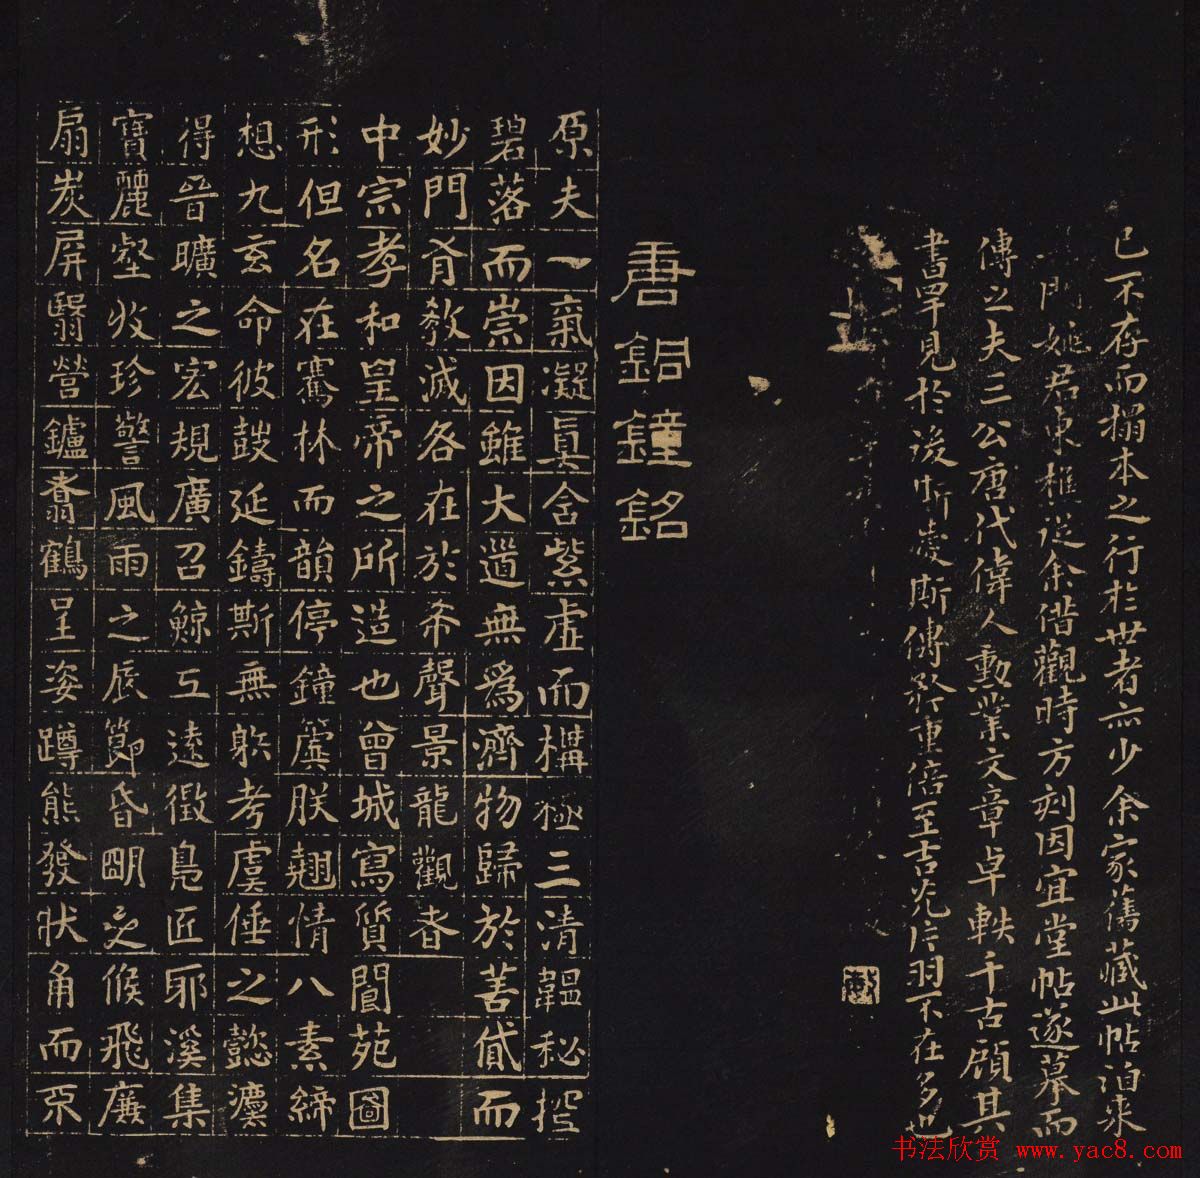 已不存而搨本之行於世者亦少余家舊藏此帖泊來
門姚君東樵從余借觀時方刻因宜堂帖遂摹而
傳之夫三公唐代偉人勳業文章卓軼千古顧其
書罕見於後斯傳矜重倍至吉光片羽不在多也
唐銅鐘銘
原夫一氣凝真含紫虛而構極三清韞秘控
碧落而崇因雖大道無爲濟物歸於善貸而
妙門有教滅咎在於希聲景龍觀者
中宗孝和皇帝之所造也曾城寫質閬苑圖
形但名在騫林而韻停鐘簴朕翹情八素締
想九玄命彼鼓延鑄斯無射考虞倕之懿灋
得晉曠之宏規廣召鯨工遠徵鳧匠耶溪集
寶麗壑收珍警風雨之辰節昏明之候飛廉
扇炭屏翳營鑪翥鶴呈姿蹲熊發狀角而不
书法欣赏 www.yac8.com